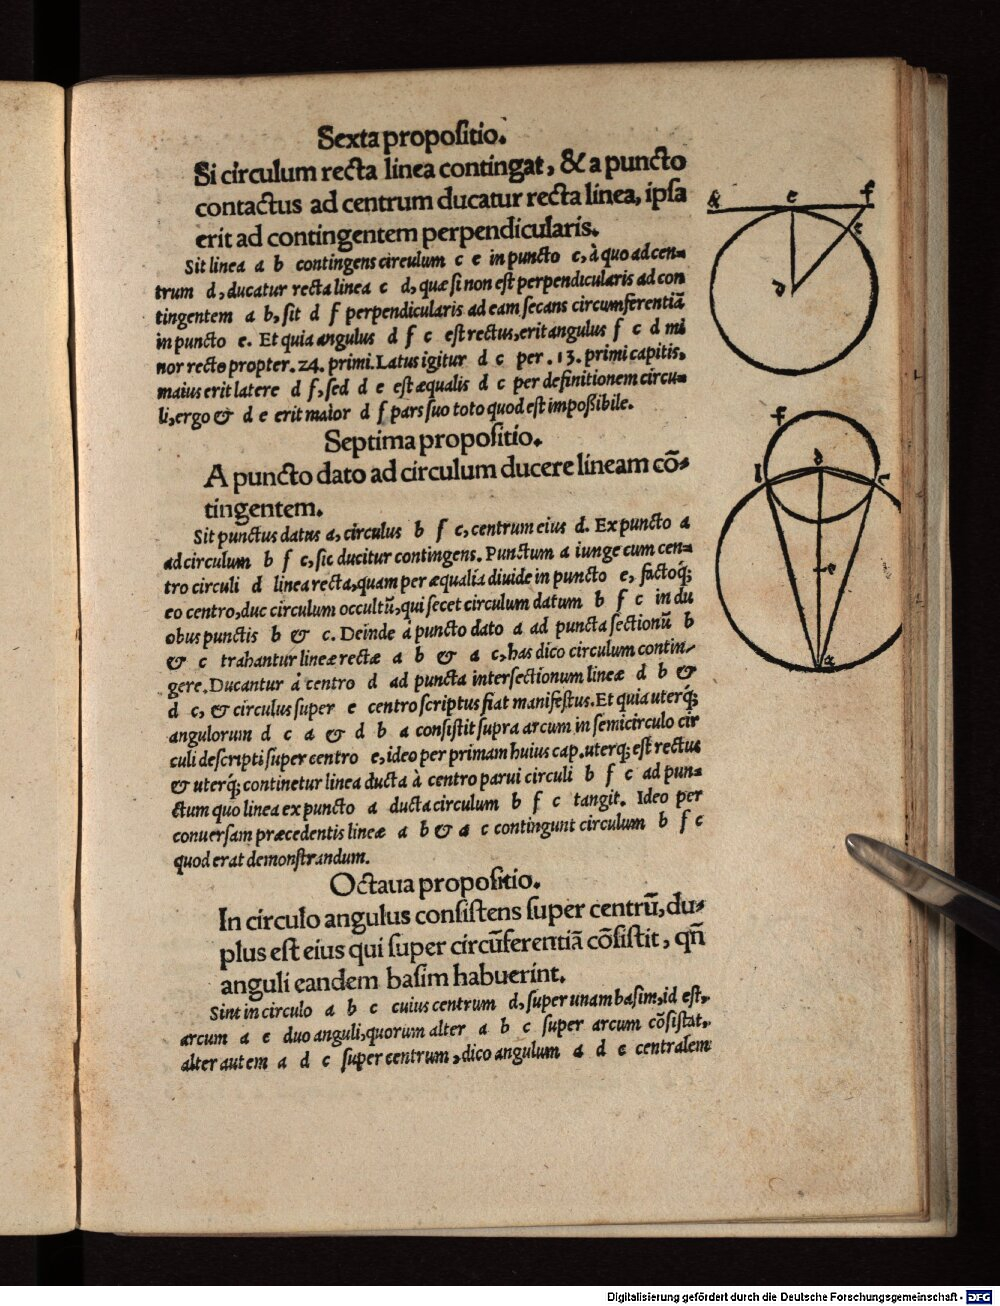 Sexta propositio.
Si circulum recta linea contingat, & a puncto
contactus ad centrum ducatur recta linea, ipsa
erit ad contingentem perpendicularis.
Sit linea a b contingens circulum c e in puncto c, à quo ad cen-
trum d, ducatur recta linea c d, quæ si non est perpendicularis ad con
tingentem a b, sit d f perpendicularis ad eam secans circumferentiã
in puncto e. Et quia angulus d f c est rectus, erit angulus f c d mi
nor recto propter .24. primi. Latus igitur d c per .13. primi capitis,
maius erit latere d f, sed d e est æqualis d c per definitionem circu-
li, ergo & d e erit maior d f pars suo toto quod est impoßibile.
Septima propositio.
A puncto dato ad circulum ducere lineam cõ-
tingentem.
Sit punctus datus a, circulus b f c, centrum eius d. Ex puncto a
ad circulum b f c, sic ducitur contingens. Punctum a iunge cum cen-
tro circuli d linea recta, quam per æqualia diuide in puncto e, factoq́;
eo centro, duc circulum occultũ, qui secet circulum datum b f c in du
obus punctis b & c. Deinde à puncto dato a ad puncta sectionũ b
& c trahantur lineæ rectæ a b & a c, has dico circulum contin-
gere. Ducantur à centro d ad puncta intersectionum lineæ d b &
d c, & circulus super e centro scriptus fiat manifestus. Et quia uterq́;
angulorum d c a & d b a consistit supra arcum in semicirculo cir
culi descripti super centro e, ideo per primam huius cap. uterq; est rectus
& uterq́; continetur linea ducta à centro parui circuli b f c ad pun-
ctum quo linea ex puncto a ducta circulum b f c tangit. Ideo per
conuersam præcedentis lineæ a b & a c contingunt circulum b f c
quod erat demonstrandum.
Octaua propositio.
In circulo angulus consistens super centrũ, du-
plus est eius qui super circũferentiã cõsistit, qñ
anguli eandem basim habuerint.
Sint in circulo a b c cuius centrum d, super unam basim, id est,
arcum a c duo anguli, quorum alter a b c super arcum cõsistat,
alter autem a d c super centrum, dico angulum a d c centralem
c
f
e
d
f
d
c
e
a
Digitalisierung gefördert durch die Deutsche Forschungsgemeinschaft - DFG